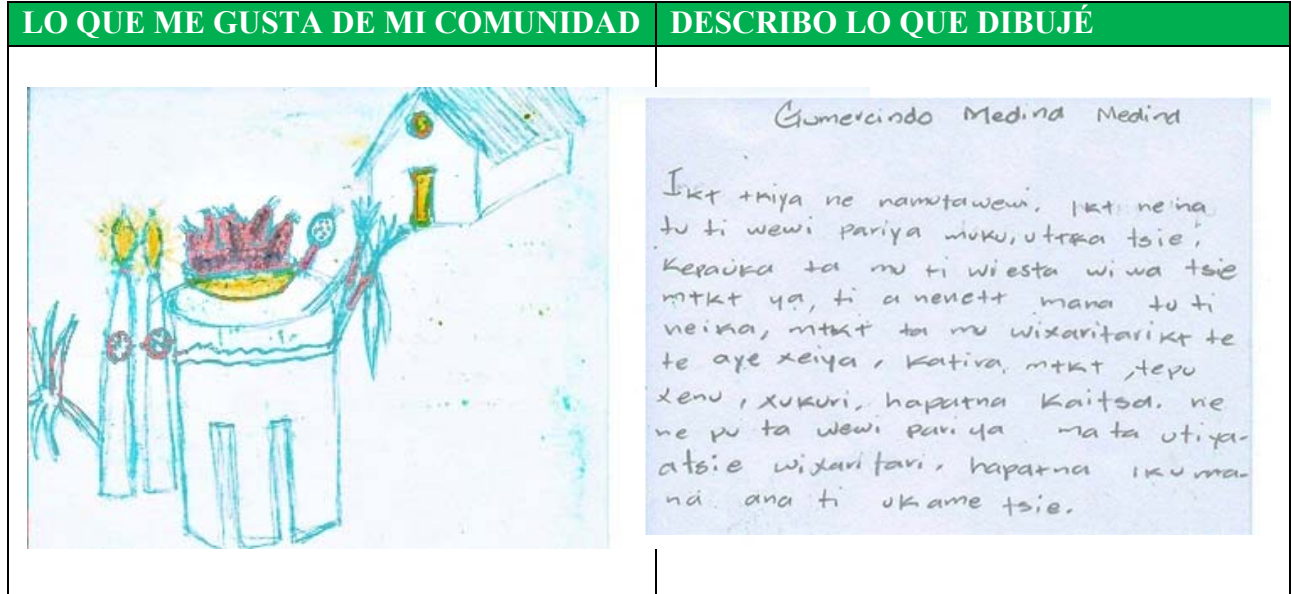 LO QUE ME GUSTA DE MI COMUNIDAD
DESCRIBO LO QUE DIBUJÉ
Gumercindo Medina Medina
Ikɨ tɨkiya ne namutawewi. Ikɨ neina
tu ti wewi pariya muku,
Kepauka ta mu ti wiesta wi wa tsie
mɨkɨ ya, ti a nenetɨ mana tu ti
neika, mɨkɨ ta mu wixaritarikɨ te
te aye xeiya, kativa, mɨkɨ, tepu
xenu, xukuri, hapaɨna kaitsa. ne
ne pu ta wewi pari ya ma ta utiya-
atsie wixaritari, hapaɨna ikuma-
na ana ti ukame tsie.